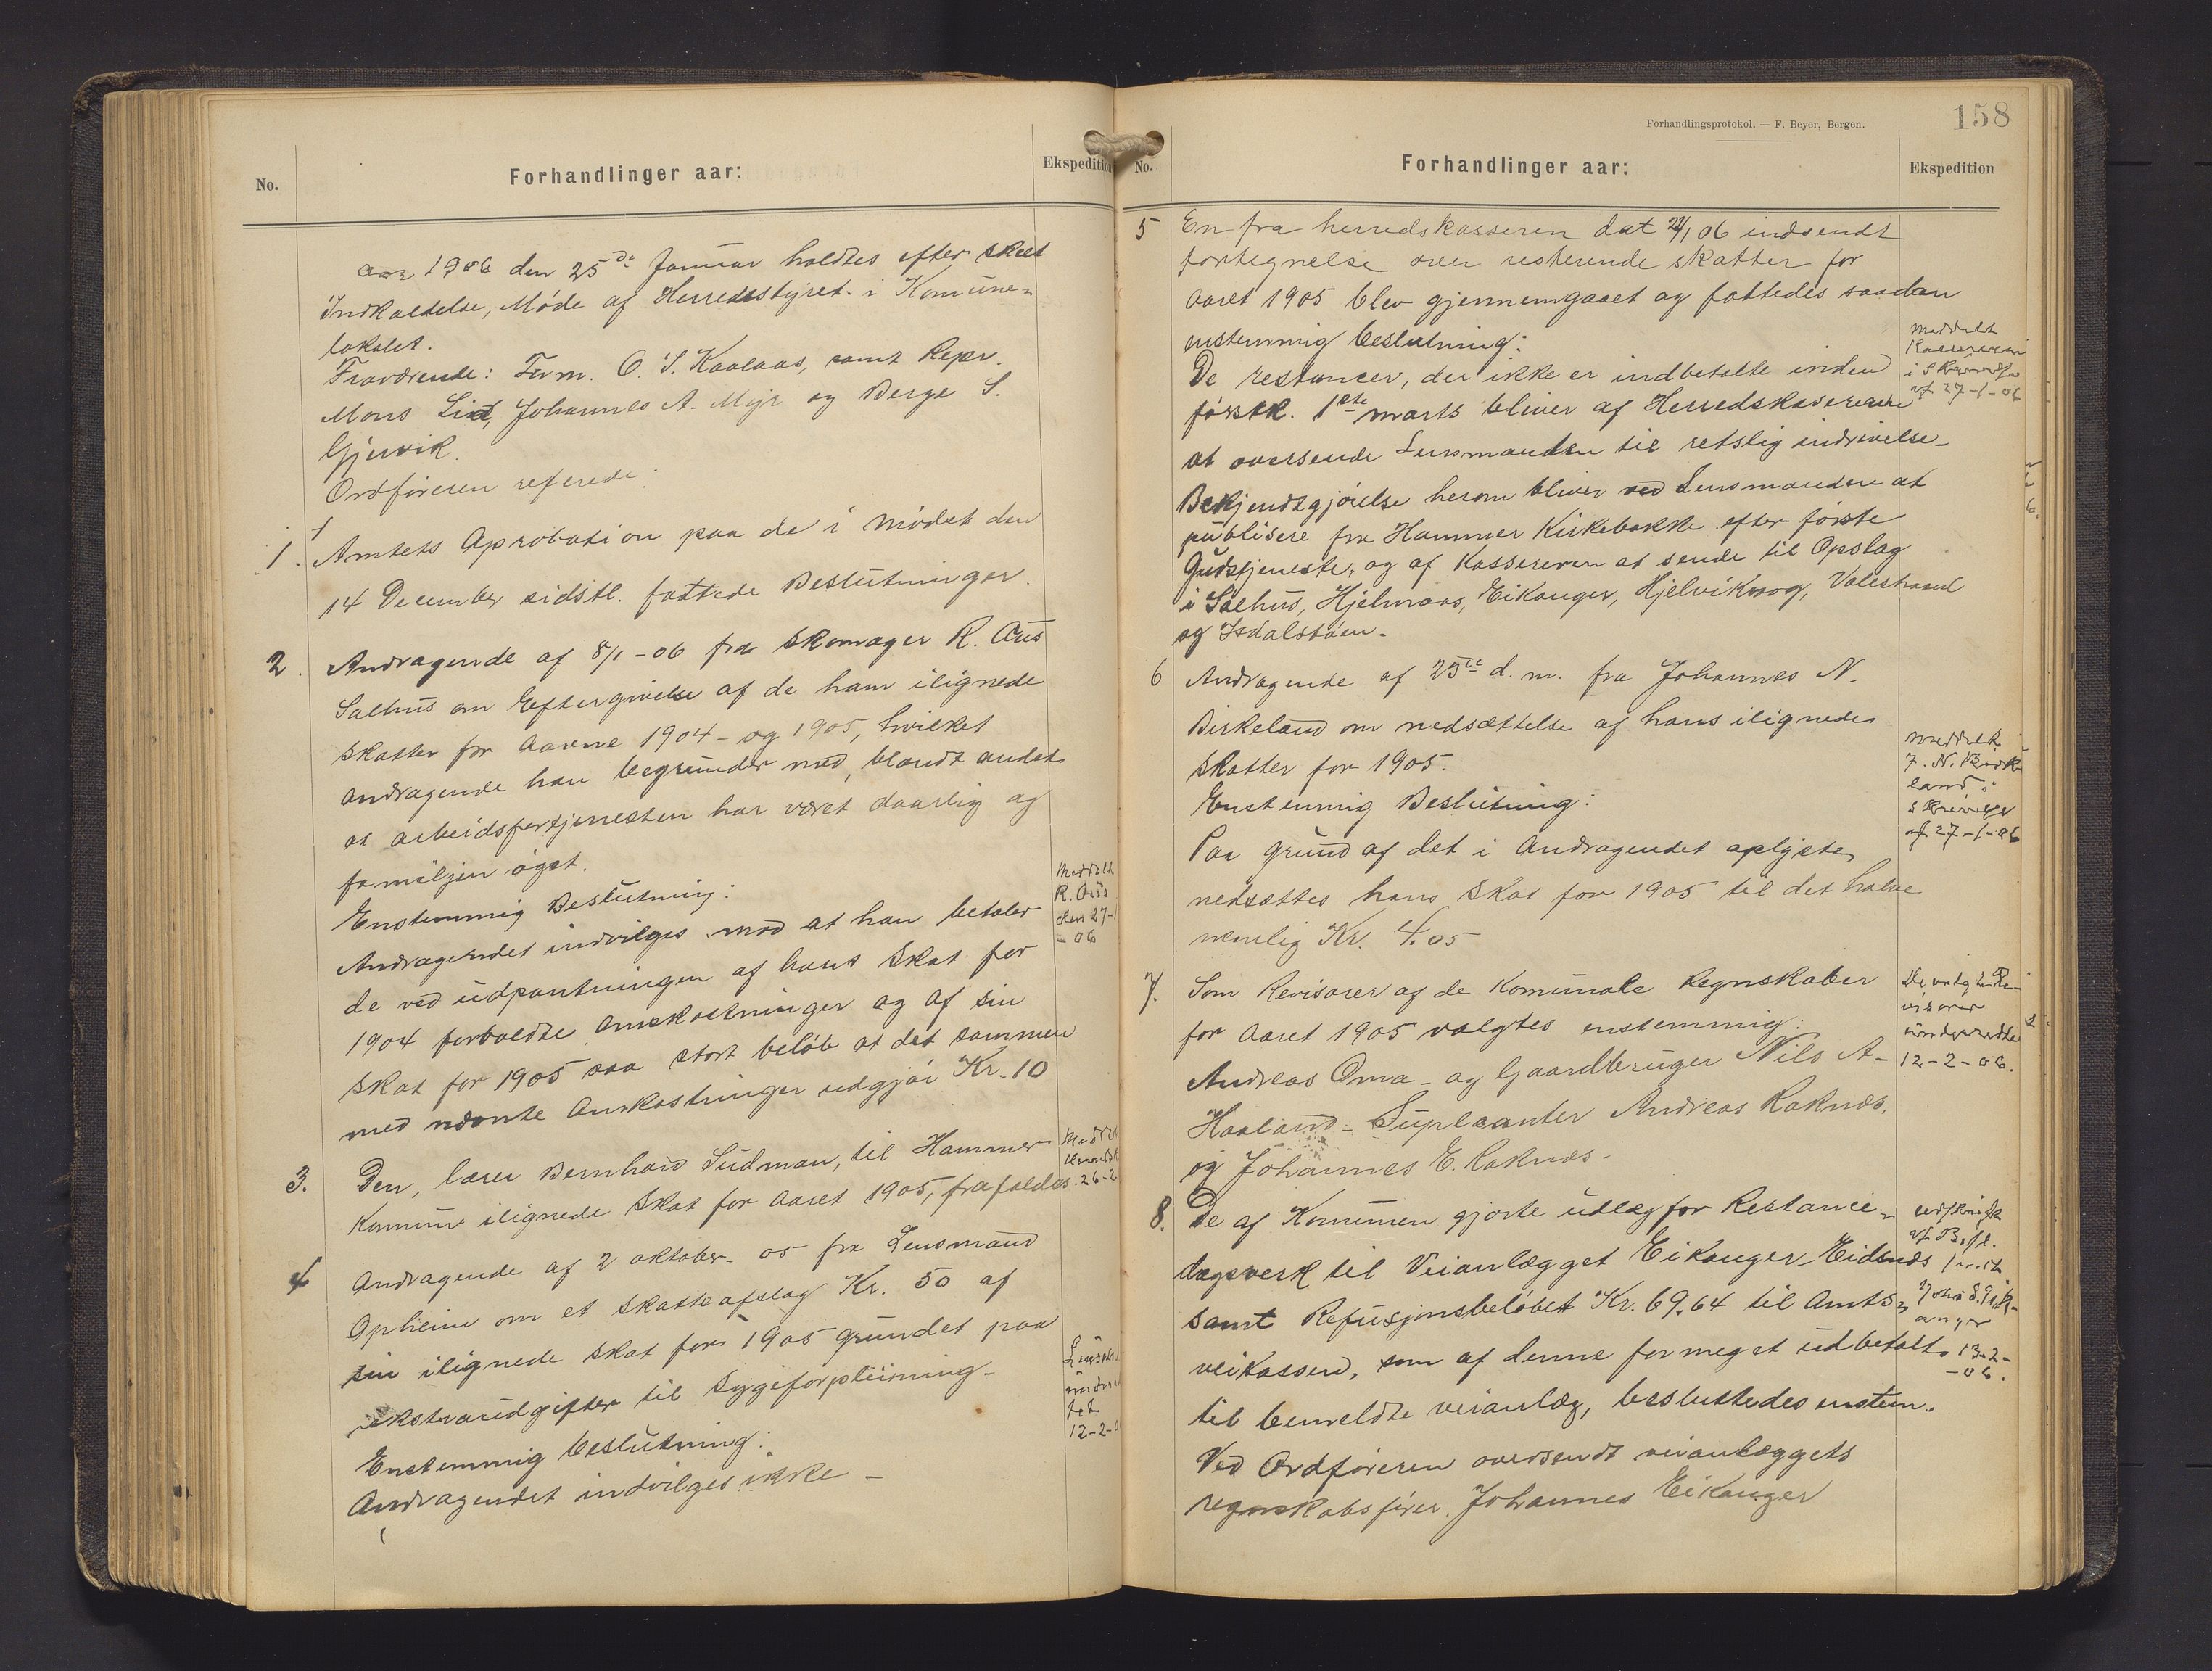 No.
Forhandlinger aar:
Ekspedition
aar 1906 den 25de Januar holdtes efter skeet
Indkaldelse, Møde af Herredsstyret i Komune-
lokalet.
Fraværende: Form. O. S. Kaalaas, samt Repr.
Mons Lid, Johannes A. Myr og Berge S.
Gjervik.
Ordføreren referede:
1. Amtets Aprobation paa de i Mødet den
14 December sidstl. fattede Beslutninger.
2. Andragende af 8/1-06 fra Skomager R. Aus
Salhus om Eftergivelse af de ham ilignede
Skatter for Aarene 1904- og 1905, hvilket
andragende han begrunder med, blandt andet
at arbeidsfortjenesten har været daarlig og
familjen øget.
Enstemmig Beslutning:
Andragendet indvilges mod at han betaler
de ved udpantningen af hans Skat for
1904 forvoldte Omkostninger og af sin
Skat for 1905 saa stort beløb at det sammen
med nævnte Omkostninger udgjør Kr. 10
Meddelt
R. Aus
den 27-1
-06
3. Den, lærer Bernhard Sudman, til Hammer
Komune ilignede Skat for Aaret 1905, frafaldes.
26-2
4 Andragende af 2 oktober-05 fra Lensmand
Opheim om et Skatteafslag Kr. 50 af
sin ilignede skat for 1905 grundet paa
ekstraudgifter til Sygeforpleining-
Enstemmig beslutning:
Andragendet indvilges ikke-
12-2-0
158
Forhandlingsprotokol. — F. Beyer, Bergen.
No.
Forhandlinger aar:
Ekspedition
5 En fra herredskasseren dat 24/1 06 indsendt
fortegnelse over resterende skatter for
Aaret 1905 blev gjennemgaaet og fattedes saadan
enstemmig beslutning:
De restancer, der ikke er indbetalte inden
førstk. 1ste marts bliver af Herredskassereren
at oversende Lensmanden til retslig inddrivelse-
Bekjendtgjørelse herom bliver ved Lensmanden at
publisere fra Hammer Kirkebakke efter første
Gudstjeneste, og af Kassereren at sende til Opslag
i Salhus, Hjelmaas, Eikanger, Hjelvikvog, Valestrand
og Isdalstøen-
Meddelt
Kassereren
i Skrivelse
af 27-1-06
6 Andragende af 25de d. m. fra Johannes N.
Birkeland om nedsættelse af hans ilignede
Skatter for 1905.
Enstemmig Beslutning:
Paa grund af det i Andragendet oplyste,
nedsættes hans Skat for 1905 til det halve
nemlig Kr. 4.05
meddelt
J. N. Birke
land i
Skrivelse
af 27-1-06
7. Som Revisorer af de Komunale Regnskaber
for Aaret 1905 valgtes enstemmig:
Andreas Oma- og Gaardbruger Nils A-
Haaland- Supleanter Andreas Raknæs,
og Johannes E. Raknæs-
De valgte Re-
visorer
underrettet
12-2-06.
8. De af Komunen gjorte udlæg for Restance-
dagsverk til Veianlægget Eikanger-Eidsnæs
samt Refusjonsbeløbet Kr. 69.64 til Amts-
veikassen, som af denne for meget udbetalt
til bemeldte veianlæg, besluttedes enstem.
Ved Ordføreren oversendt veianlæggets
regnskabsfører, Johannes Eikanger
udskrift
af B. fl.
13-2-
-06.